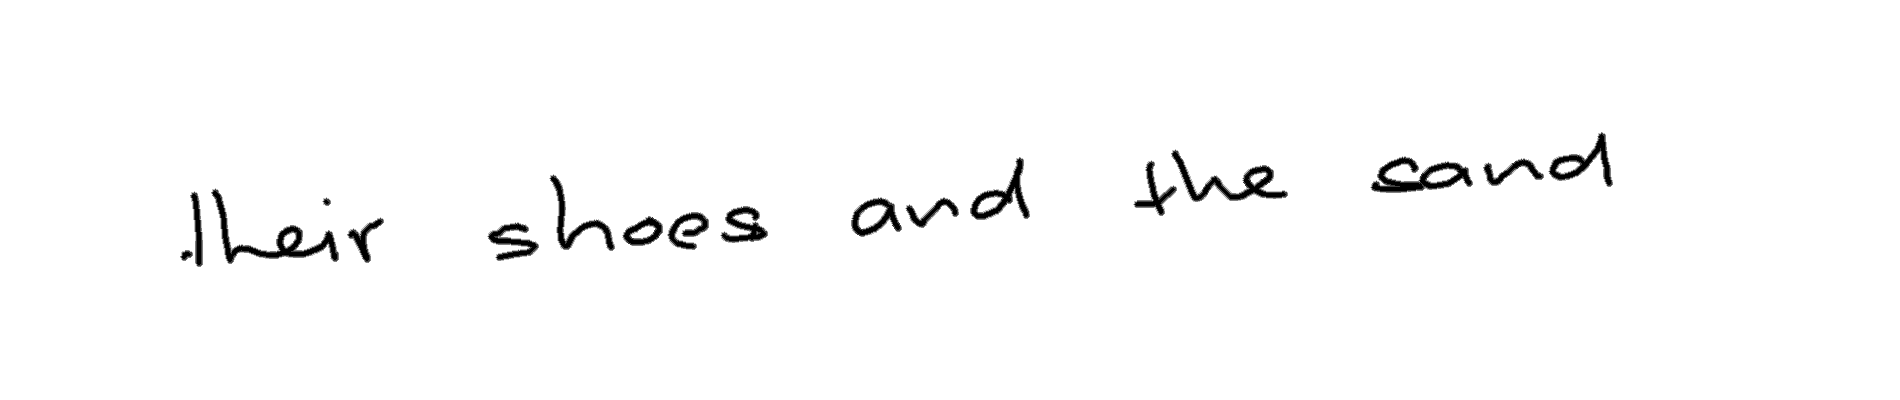 their shoes and the sand